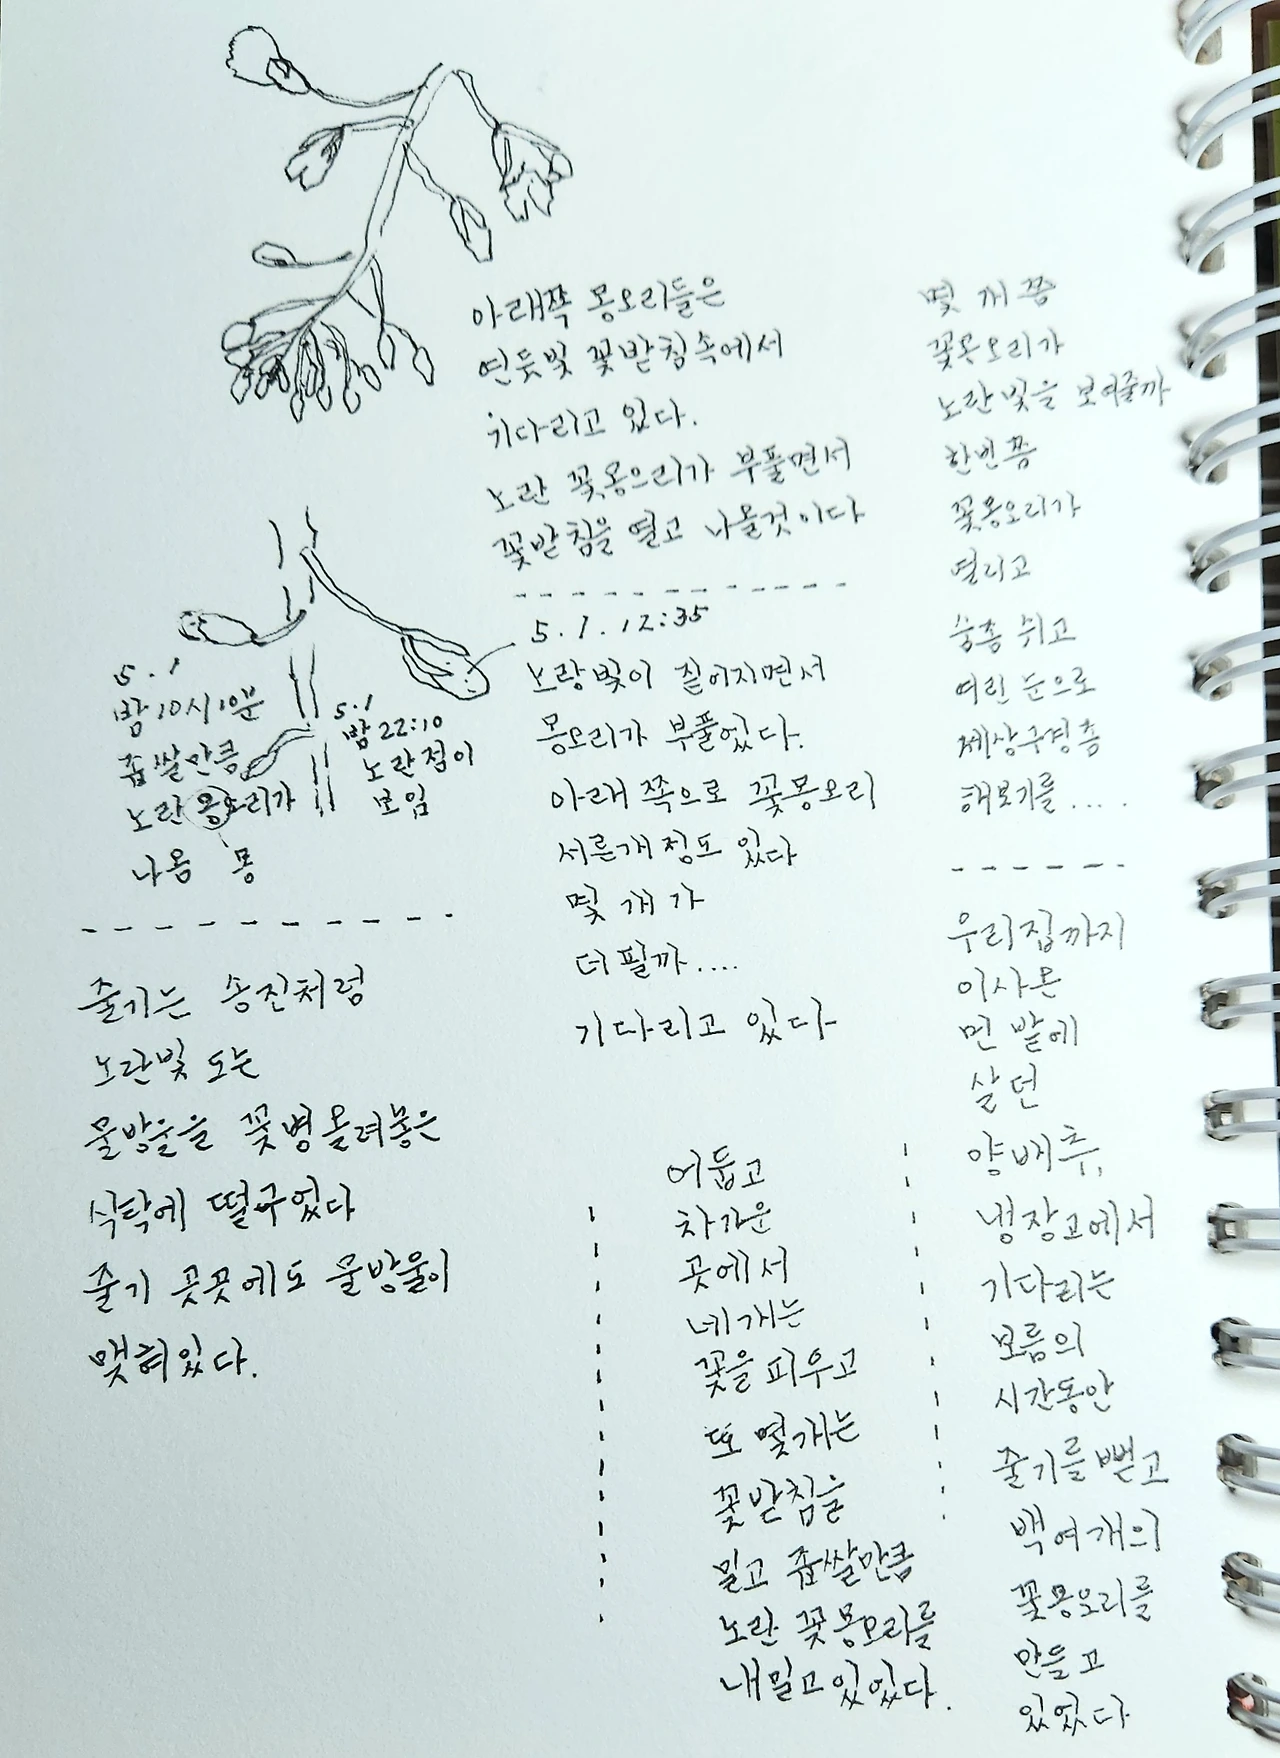 아래쪽 몽오리들은
연둣빛 꽃받침속에서
기다리고 있다.
노란 꽃몽으리가 부풀면서
꽃받침을 열고 나올것이다
5.1. 12:35
노랑빛이 짙어지면서
몽오리가 부풀었다.
아래쪽으로 꽃몽오리
서른개정도 있다
몇 개가
더필까....
기다리고 있다
5.1
밤10시10분
좁쌀만큼
노란 몽오리가
나옴 몽
5.1
밤 22:10
노란점이
보임
줄기는 송진처럼
노란빛 도는
물방울을 꽃병올려놓은
식탁에 떨구었다
줄기 곳곳에도 물방울이
맺혀있다.
어둡고
차가운
곳에서
네개는
꽃을 피우고
또 몇개는
꽃받침을
밀고 좁쌀만큼
노란 꽃몽오리를
내밀고있었다.
몇 개쯤
꽃몽오리가
노란빛을 보여줄까
한번쯤
꽃몽오리가
열리고
숨좀 쉬고
여린 눈으로
세상구경좀
해보기를.....
우리집까지
이사온
먼 밭에
살던
양배추,
냉장고에서
기다리는
보름의
시간동안
줄기를 뻗고
백여개의
꽃몽오리를
만들고
있었다